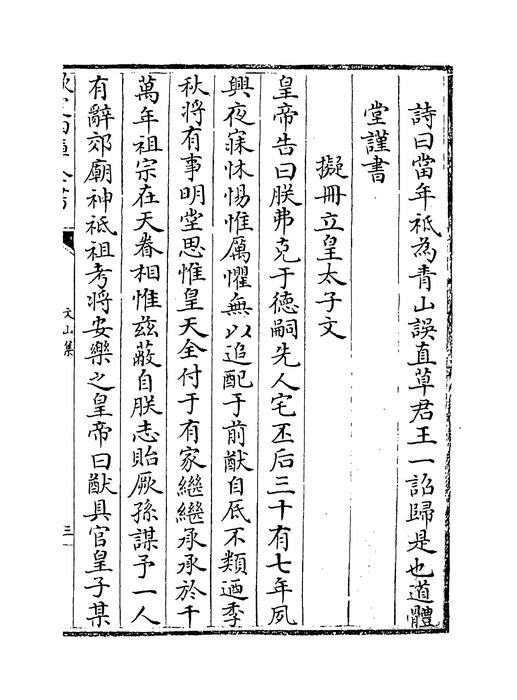 詩曰當年祗為青山誤直草君王一詔歸是也道體
堂謹書
擬冊立皇太子文
皇帝告曰朕弗克于德嗣先人宅丕后三十有七年夙
興夜寐怵惕惟厲懼無以追配于前猷自底不類迺季
秋將有事明堂思惟皇天全付于有家繼繼承承於千
萬年祖宗在天眷相惟茲蔽自朕志貽厥孫謀予一人
有辭郊廟神祗祖考將安樂之皇帝曰猷具官皇子某
文山集
三